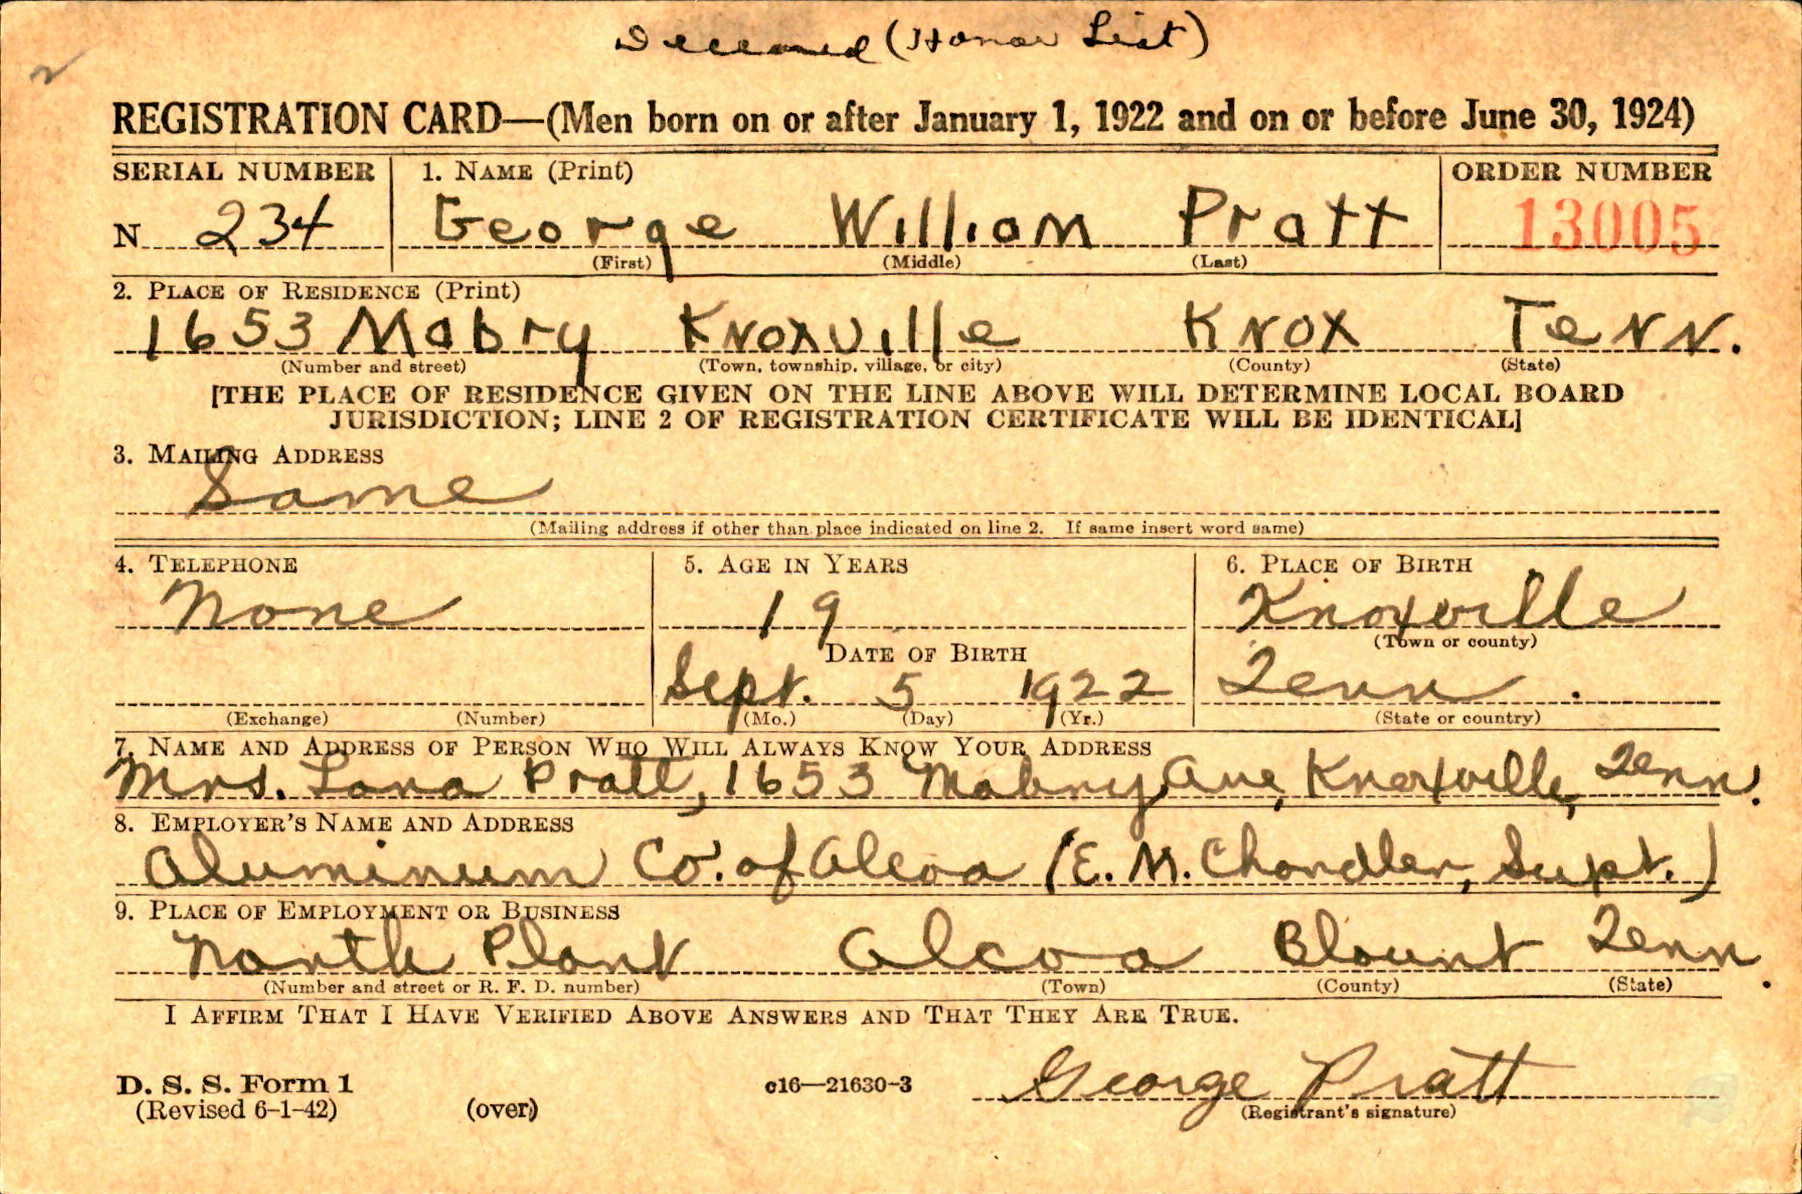 Deceased (Honor List)
REGISTRATION CARD—(Men born on or after January 1, 1922 and on or before June 30, 1924)
SERIAL NUMBER 1. NAME (Print) ORDER NUMBER
N 234 George William Pratt 13005
(First) (Middle) (Last)
2. PLACE OF RESIDENCE (Print)
1653 Mabry Knoxville Knox Tenn.
(Number and street) (Town, township, village, or city) (County) (State)
[THE PLACE OF RESIDENCE GIVEN ON THE LINE ABOVE WILL DETERMINE LOCAL BOARD
JURISDICTION; LINE 2 OF REGISTRATION CERTIFICATE WILL BE IDENTICAL]
3. MAILING ADDRESS
Same
(Mailing address if other than place indicated on line 2. If same insert word same)
4. TELEPHONE 5. AGE IN YEARS 6. PLACE OF BIRTH
None 19 Knoxville
(Town or county)
DATE OF BIRTH
Sept. 5 1922 Tenn.
(Exchange) (Number) (Mo.) (Day) (Yr.) (State or country)
7. NAME AND ADDRESS OF PERSON WHO WILL ALWAYS KNOW YOUR ADDRESS
Mrs. Lana Pratt, 1653 Mabry Ave, Knoxville, Tenn.
8. EMPLOYER'S NAME AND ADDRESS
Aluminum Co. of Alcoa (E. M. Chandler, Supt.)
9. PLACE OF EMPLOYMENT OR BUSINESS
North Plant Alcoa Blount Tenn.
(Number and street or R. F. D. number) (Town) (County) (State)
I AFFIRM THAT I HAVE VERIFIED ABOVE ANSWERS AND THAT THEY ARE TRUE.
George Pratt
D. S. S. Form 1 c16—21630-3
(Revised 6-1-42) (over) (Registrant's signature)